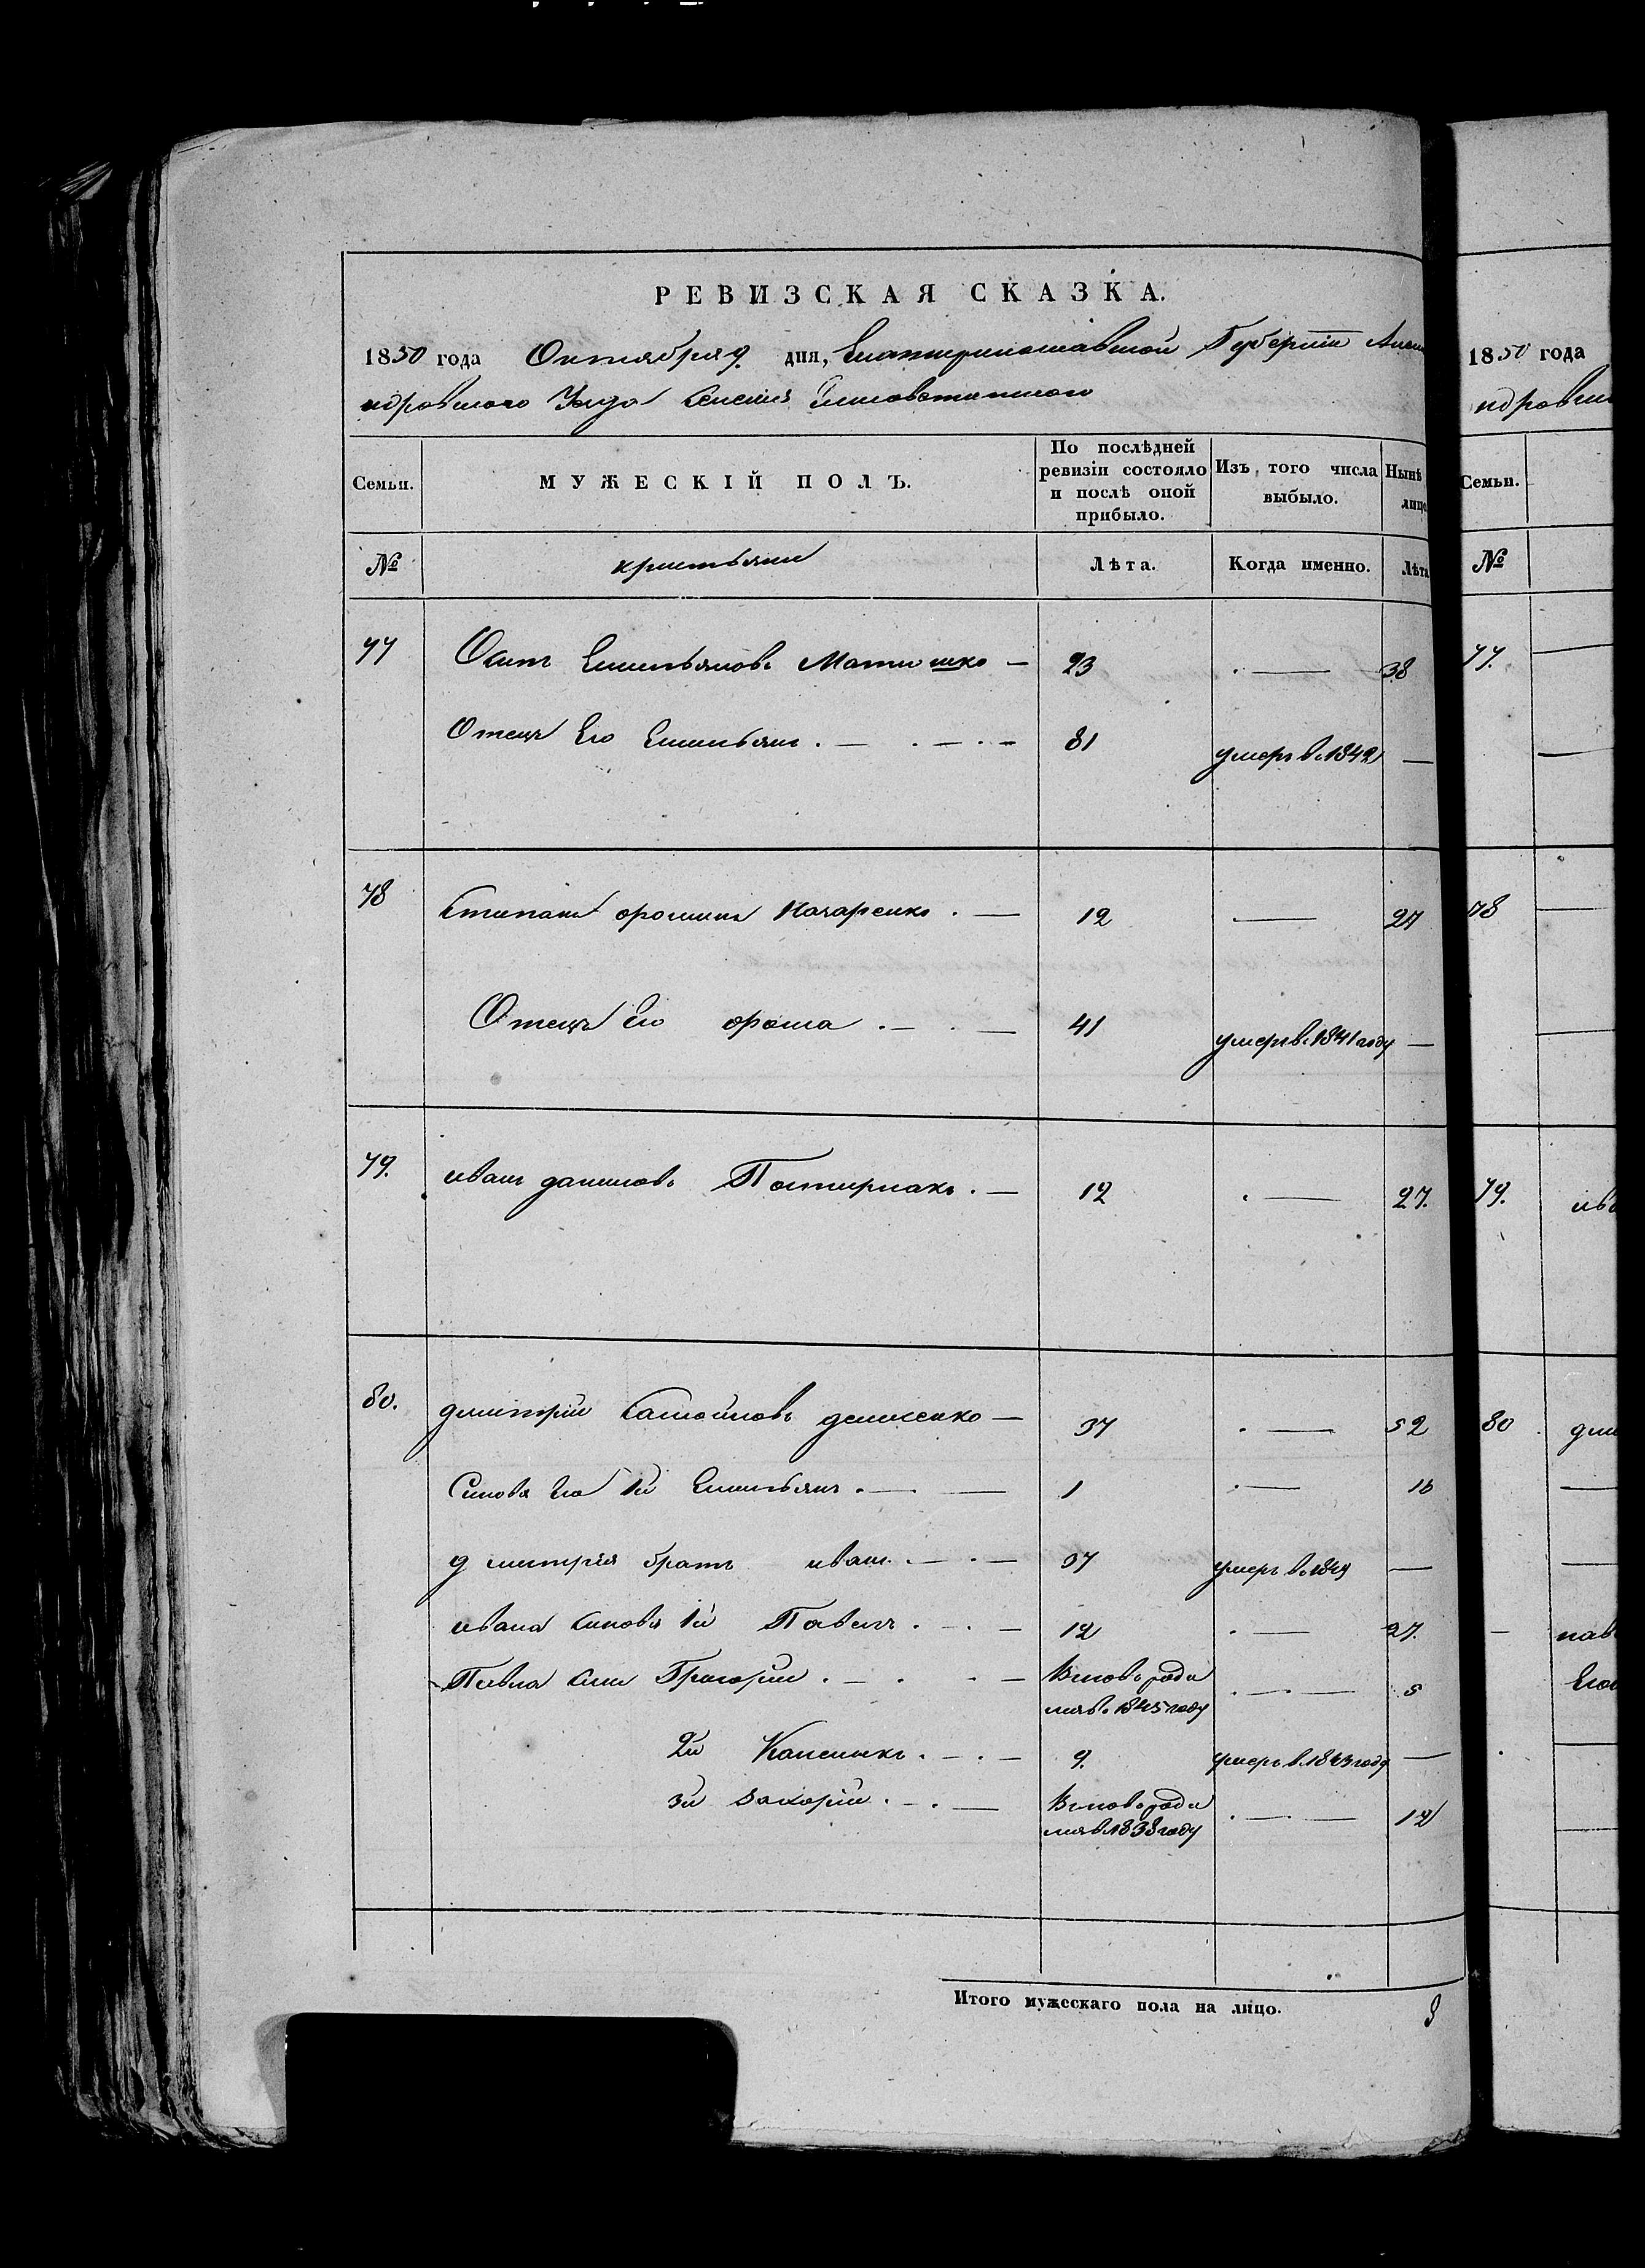 РЕВИЗСКАЯ СКАЗКА.
1850 года Октября 9. дня, Екатеринославской Губернии Алекса
ндровскаго Уезда селения
Семьи.
МУЖЕСКІЙ ПОЛЪ.
По послѣдней ревизіи состояло и послѣ оной прибыло.
Изъ того числа выбыло.
Нынѣ лицо
№
Лѣта.
Когда именно.
Лѣта
77 Осипъ Емельяновъ Матюшко — 23 . — 38
Отецъ Его Емельянъ . — . — . — 81 умеръ в. 1842 —
78 Степанъ Назаренко . — 12 . — 27
Отецъ Его фома . — . — 41 умеръ в. 1841 году —
79. иванъ даниловъ . — 12 . — 27.
80. дмитрий Самойловъ — 37 . — 52
Синовя Его 1й Емельянъ . — — 1 . — 16
дмитрія братъ иванъ . — . — 37 умеръ в. 1849 —
ивана синовя 1й Павелъ . — . — 12 . — 27.
Павла синъ Григорий . — . — Вновь роди
лся в. 1845 году . — . — 5
2й . — . — 9. умеръ в. 1843 году —
3й Захорий . — . — Вновь роди
лся в. 1838 году . — . — 12
Итого мужескаго пола на лицо. 8
1850 года
ндровск
Семьи.
№
77.
78
79. ива
80 дми
— пав